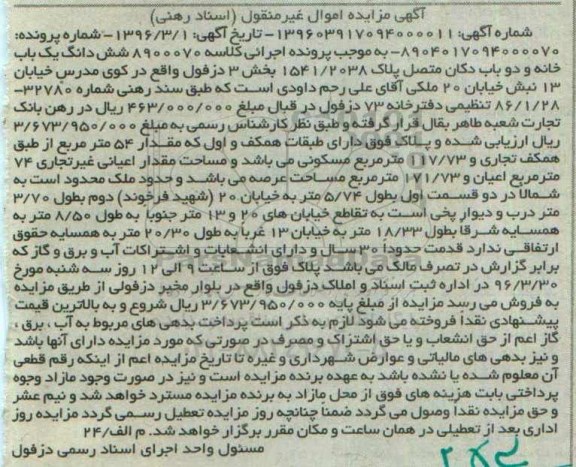 آگهی مزایده اموال غیرمنقول (اسناد رهنی)
شماره آگهی: ۱۳۹۶۰۳۹۱۷۰۹۴۰۰۰۰۱۱- تاریخ آگهی: ۱۳۹۶/۳/۱- شماره پرونده:
۸۹۰۴۰۱۷۰۹۴۰۰۰۰۷۰- به موجب پرونده اجرائی کلاسه ۸۹۰۰۰۷۰ شش دانگ یک باب
خانه و دو باب دکان متصل پلاک ۱۵۴۱/۲۰۳۸ بخش ۳ دزفول واقع در کوی مدرس خیابان
۱۳ نبش خیابان ۲۰ ملکی آقای علی رحم داودی است که طبق سند رهنی شماره ۳۲۷۸۰-
۸۶/۱/۲۸ تنظیمی دفترخانه ۷۳ دزفول در قبال مبلغ ۴۶۳/۰۰۰/۰۰۰ ریال در رهن بانک
تجارت شعبه طاهر بقال قرار گرفته و طبق نظر کارشناس رسمی به مبلغ ۳/۶۷۳/۹۵۰/۰۰۰
ریال ارزیابی شده و پلاک فوق دارای طبقات همکف و اول که مقدار ۵۴ متر مربع از طبق
همکف تجاری و ۱۱۷/۷۳ مترمربع مسکونی می باشد و مساحت مقدار اعیانی غیرتجاری ۷۴
مترمربع اعیان و ۱۷۱/۷۳ مترمربع مساحت عرصه می باشد و حدود ملک محدود است به
شمالا در دو قسمت اول بطول ۵/۷۴ متر به خیابان ۲۰ (شهید فرخوند) دوم بطول ۳/۷۰
متر درب و دیوار پخی است به تقاطع خیابان های ۲۰ و ۱۳ متر جنوبا به طول ۸/۵۰ متر به
همسایه شرقا بطول ۱۸/۳۳ متر به خیابان ۱۳ غربا به طول ۲۰/۳۰ متر به همسایه حقوق
ارتفاقی ندارد قدمت حدودا ۳۰ سال و دارای انشعابات و اشتراکات آب و برق و گاز که
برابر گزارش در تصرف مالک می باشد پلاک فوق از ساعت ۹ الی ۱۲ روز سه شنبه مورخ
۹۶/۳/۳۰ در اداره ثبت اسناد و املاک دزفول واقع در بلوار مخبر دزفولی از طریق مزایده
به فروش می رسد مزایده از مبلغ پایه ۳/۶۷۳/۹۵۰/۰۰۰ ریال شروع و به بالاترین قیمت
پیشنهادی نقدا فروخته می شود لازم به ذکر است پرداخت بدهی های مربوط به آب ، برق ،
گاز اعم از حق انشعاب و یا حق اشتراک و مصرف در صورتی که مورد مزایده دارای آنها باشد
و نیز بدهی های مالیاتی و عوارض شهرداری و غیره تا تاریخ مزایده اعم از اینکه رقم قطعی
آن معلوم شده یا نشده باشد به عهده برنده مزایده است و نیز در صورت وجود مازاد وجوه
پرداختی بابت هزینه های فوق از محل مازاد به برنده مزایده مسترد خواهد شد و نیم عشر
و حق مزایده نقدا وصول می گردد ضمنا چنانچه روز مزایده تعطیل رسمی گردد مزایده روز
اداری بعد از تعطیلی در همان ساعت و مکان مقرر برگزار خواهد شد. م الف/۲۴
مسئول واحد اجرای اسناد رسمی دزفول